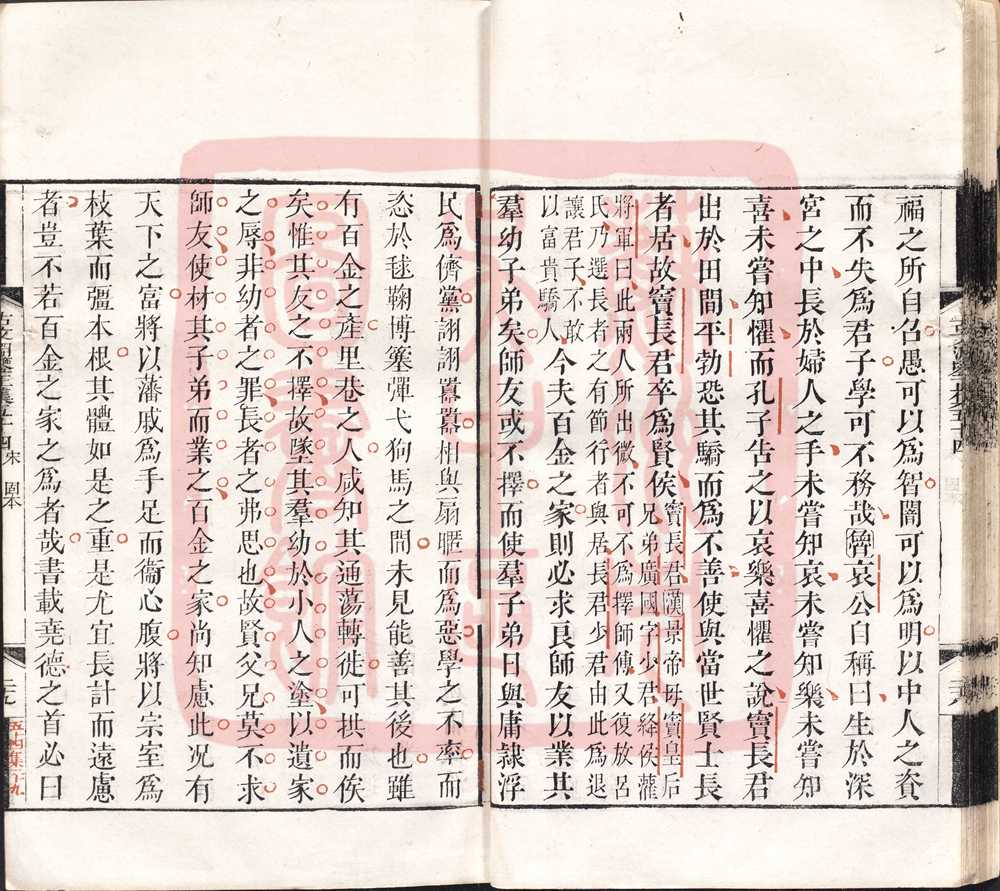 福之所自召愚可以爲智闇可以爲明以中人之資
而不失爲君子學可不務哉魯哀公自稱曰生於深
宮之中長於婦人之手未嘗知哀未嘗知樂未嘗知
喜未嘗知懼而孔子告之以哀樂喜懼之說竇長君
出於田間平勃恐其驕而爲不善使與當世賢士長
者居故竇長君卒爲賢侯竇長君漢景帝母竇皇后
兄弟廣國字少君絳侯灌
將軍曰此兩人所出微不可不爲擇師傅又復放呂
氏乃選長者之有節行者與居長君少君由此爲退
讓君子不敢
以富貴驕人今夫百金之家則必求良師友以業其
羣幼子弟矣師友或不擇而使羣子弟日與庸隸浮
民爲儕黨詡詡囂囂相與扇暱而爲惡學之不率而
恣於毬鞠博簺彈弋狗馬之間未見能善其後也雖
有百金之產里巷之人咸知其通蕩轉徙可拱而俟
矣惟其友之不擇故墜其羣幼於小人之塗以遺家
之辱非幼者之罪長者之弗思也故賢父兄莫不求
師友使材其子弟而業之百金之家尚知慮此况有
天下之富將以藩戚爲手足而衞心腹將以宗室爲
枝葉而彊本根其體如是之重是尤宜長計而遠慮
者豈不若百金之家之爲者哉書載堯德之首必曰